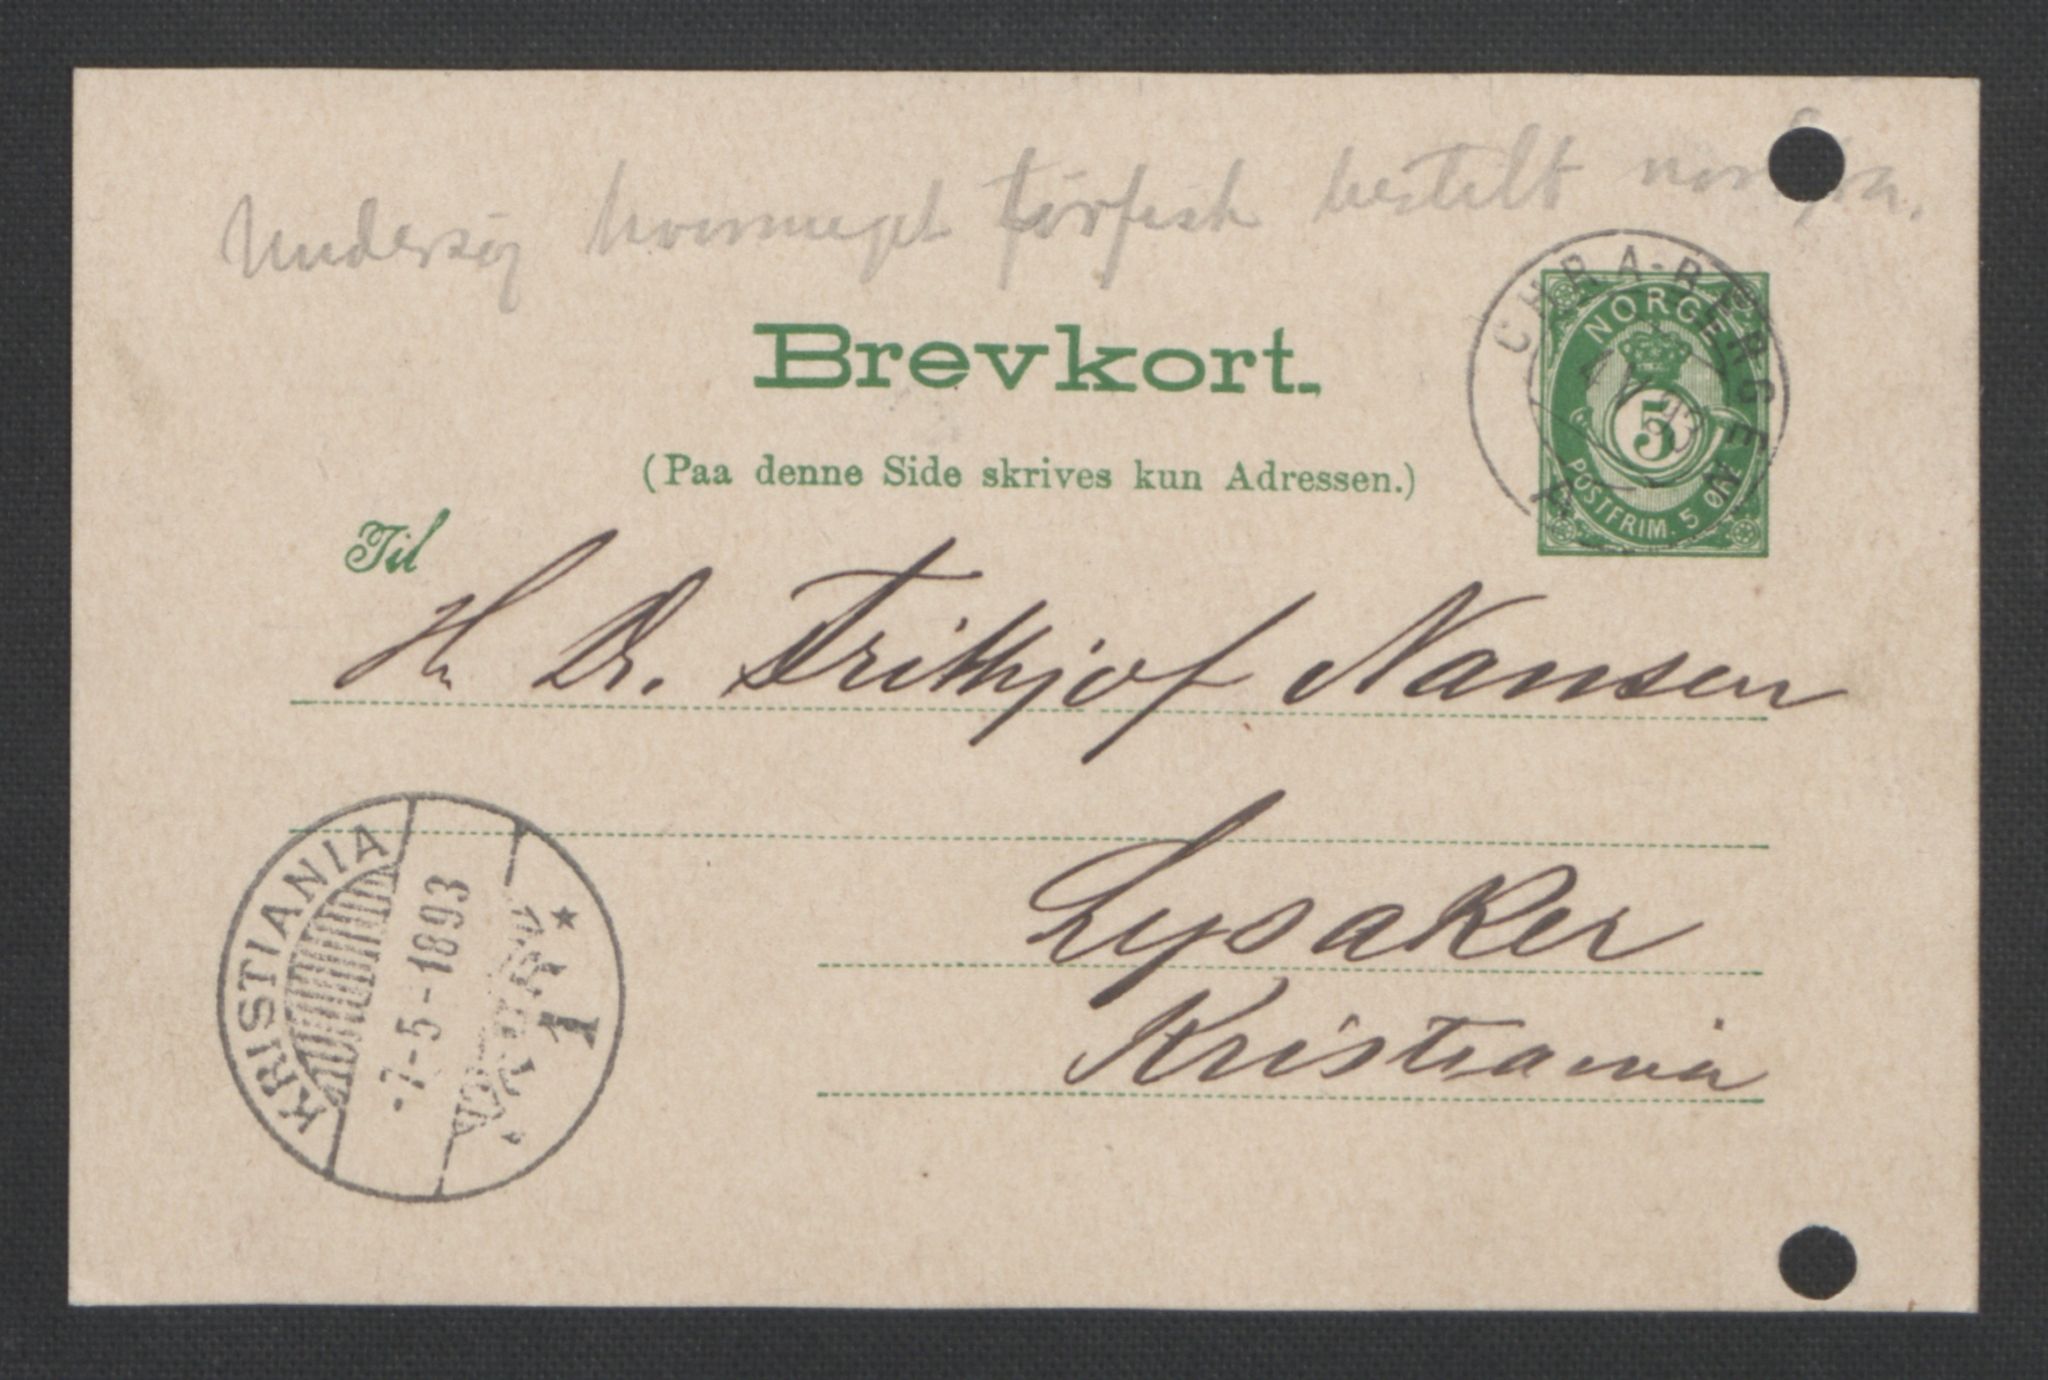 Undersøg hvormeget tørfisk bestilt
Brevkort.
(Paa denne Side skrives kun Adressen.)
CHR.A-BERGEN
NORGE
5
POSTFRIM. 5 ØRE
Til
Hr. Dr. Frithjof Nansen
Lysaker
Kristiania
KRISTIANIA
-7-5-1893
1